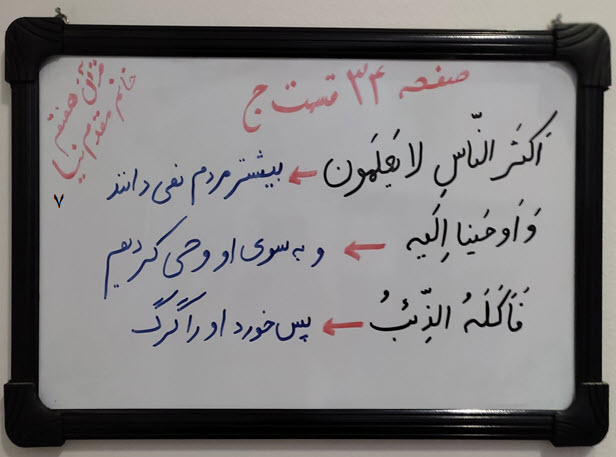 صفحه ۳۴ قسمت ج
قرآن هفتم
خانم مقدم نیا
۷
اَکثَرَ النّاسِ لا یَعلَمون ← بیشتر مردم نمی دانند
وَ اَوحَینا اِلَیه ← و به سوی او وحی کردیم
فَاَکَلَهُ الذِّئبُ ← پس خورد او را گرگ